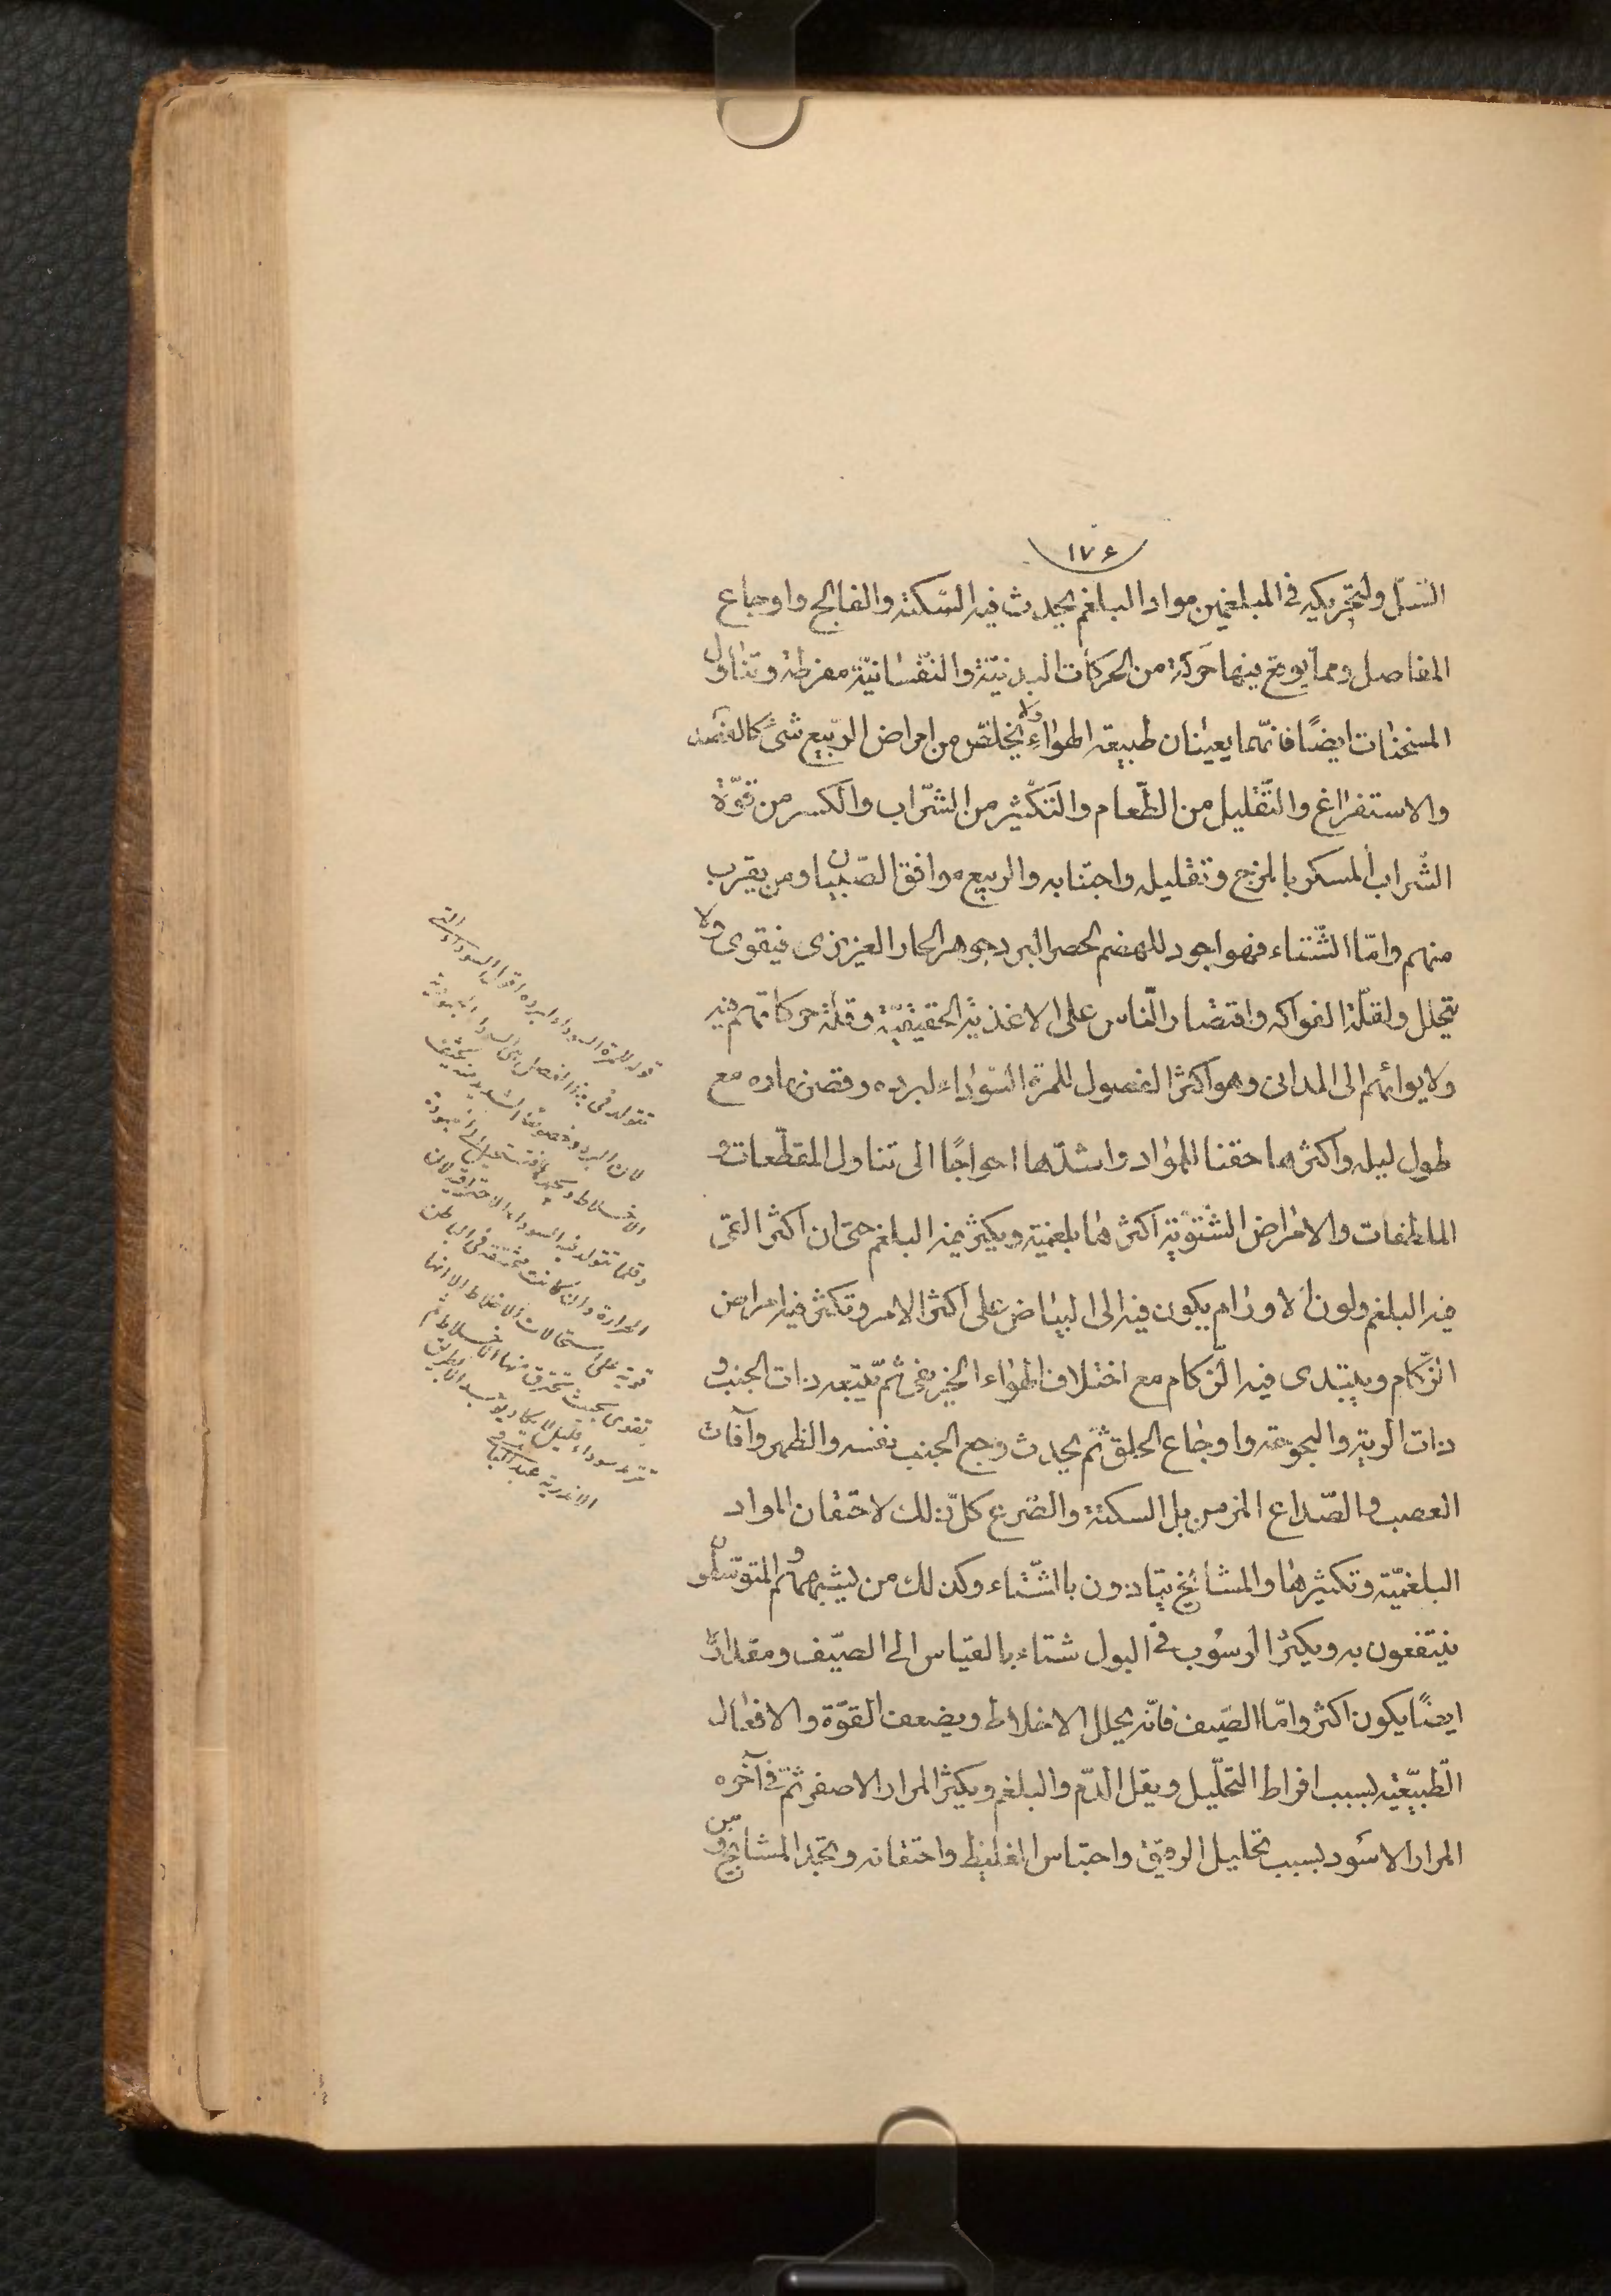 ١٧٤
السّل ولتحريكه فى المبلغمين مواد البلغم يحدث فيه السّكتة والفالج واوجاع
المفاصل ومما يوقع فيها حركة من الحركات البدنيّة والنفسانيّة مفرطة وتناول
المسخنات ايضًا فانّهما يعينان طبيعة الهواءِ ولا يخلّص من امراض الرّبيع شىٌ كالفصد
والاستفراغ والتّقليل من الطّعام والتّكثير من الشّراب والكسر من قوّة
الشّراب المسكر بالمزج وتقليله واجتنابه والربيع موافق الصّبيان ومن يقرب
منهم وامّا الشّتاء فهو اجود للهضم لحصر البرد جوهر الحار الغريزى فيقوى ولا
يتحلل ولقلّة الفواكه واقتصار النّاس على الاغذية الحقيقيّة وقلة حركاتهم فيه
ولايوائهم الى المدافى وهو اكثر الفصول للمرة السّوداء لبرده وقصر نهاره مع
طول ليله واكثرها حقنا للموّاد واشدّها احواجًا الى تناول المقطّعات و
الملطفات والامراض الشّتويّة اكثرها بلغمية ويكثر فيه البلغم حتى ان اكثر القى
فيه البلغم ولون الاورام يكون فيه الى البياض على اكثر الامر وتكثر فيه امراض
الزّكام ويبتدى فيه الزّكام مع اختلاف الهواء الخريفى ثمّ يتّبعه ذات الجنب و
ذات الرية والبحوحة واوجاع الحلق ثم يحدث وجع الجنب نفسه والظهر وآفات
العصب والصّداع المزمن بل السكتة والصّرع كلّ ذلك لاحتقان المواد
البلغميّة وتكثيرها والمشائخ يتاذون بالشّتاء وكذلك من يشبههم والمتوسّطون
ينتفعون به ويكثر الرسُوب فى البول شتاء بالقياس الى الصيّف ومقداره
ايضًا يكون اكثر وامّا الصّيف فانّه يحلل الاخلاط ويضعف القوّة والافعال
الطّبيعّية بسبب افراط التحلّيل ويقل الدّم والبلغم ويكثر المرار الاصفر ثمّ فى آخره
المرار الاسود بسبب تحليل الرقيق واحتباس الغليظ واحتقانه وتجد المشايخ ومن
قوله للمرة السوداء لبرده اقول السوداء التى
تتولد فى هذا الفصل هى السوداء
لان البرد وخصوصًا الشديد منه يكثف
الاخلاط
وقلما تتولد فيه السوداء الاحتراقية لان
الحرارة وان كانت محتقنة فى الباطن
قوية على استحالات الاخلاط الا انها
تقوى بحيث تحترق منها الاخلاط ثم
سوداء قليل لا يكاد